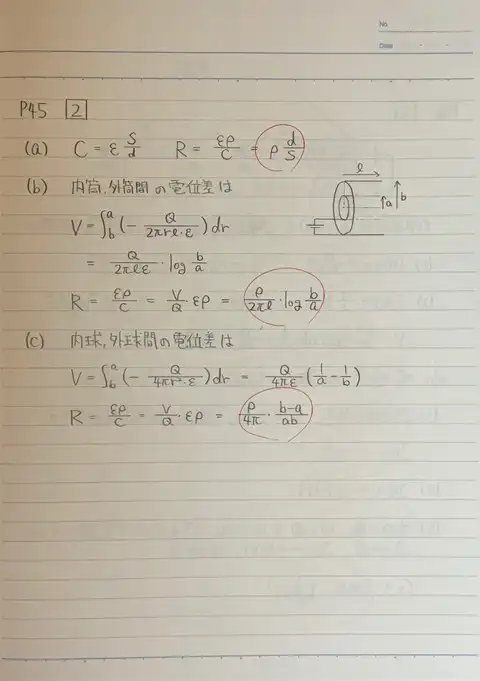 No
Date
P45 [2]
(a) C = ε S/d R = ερ/C = ρ d/S
(b) 内筒,外筒間の電位差は
V = ∫_b^a (- Q/2πrl・ε) dr
= Q/2πlε ・ log b/a
R = ερ/C = V/Q ・ ερ = ρ/2πl ・ log b/a
l
a
b
(c) 内球,外球間の電位差は
V = ∫_b^a (- Q/4πr²・ε) dr = Q/4πε (1/a - 1/b)
R = ερ/C = V/Q ・ ερ = ρ/4π ・ b-a/ab